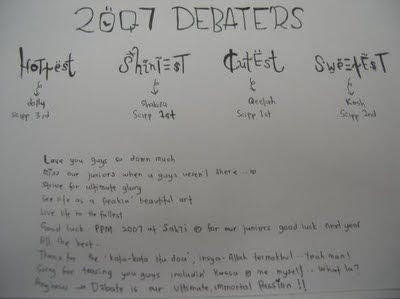 2007 DEBATERS
HOTTEST SHINIEST CUTEST SWEETEST
dolly Shakira Qeelah Kash
Scipp 3rd Scipp 1st Scipp 1st Scipp 2nd
Love you guys so damn much
Miss our juniors when u guys weren't there
Strive for ultimate glory
See life as a freakin' beautiful art
Live life to the fullest
Good luck PPM 2007 at Sakti for our juniors good luck next year
All the best
Thanks for the 'kata-kata itu doa', insya-Allah termakbul.. Yeah man!
Sorry for teasing you guys includin' me myself!.. What la?
Debate is our ultimate, immortal Passion!!